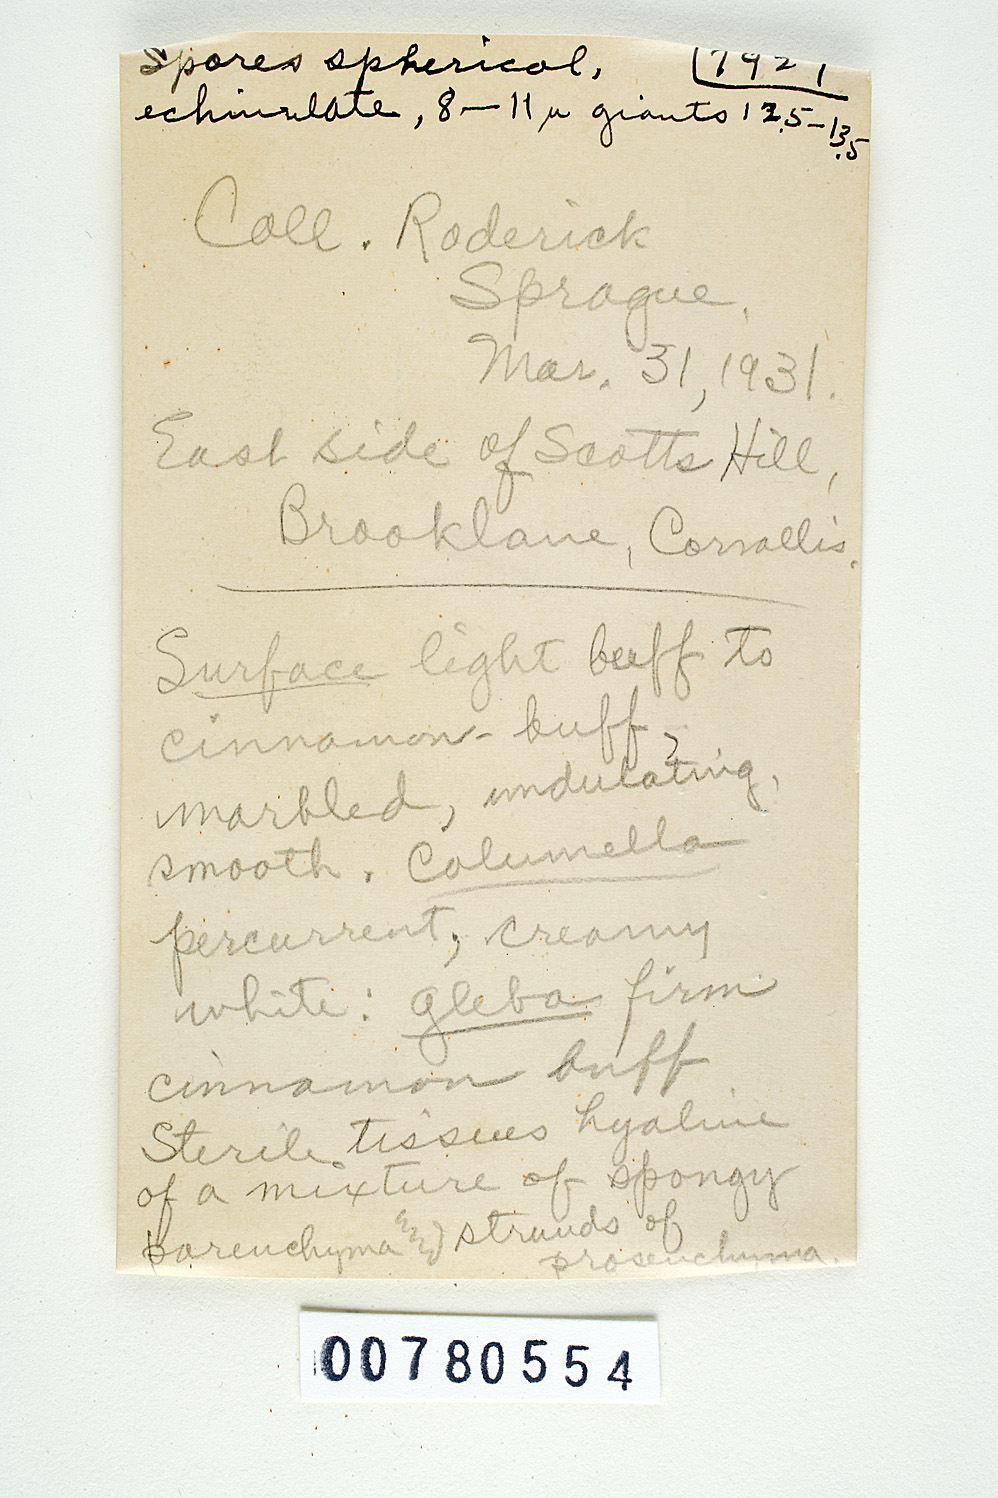 Spores spherical, 7921
echinulate, 8–11 µ giants 12.5–13.5
Coll. Roderick
Sprague.
Mar. 31, 1931.
East side of Scotts Hill,
Brooklane, Corvallis.
Surface light buff to
cinnamon-buff,
marbled, undulating,
smooth. Columella
percurrent, creamy
white: gleba firm
cinnamon buff
Sterile tissues hyaline
of a mixture of spongy
parenchyma strands of
prosenchyma.
00780554